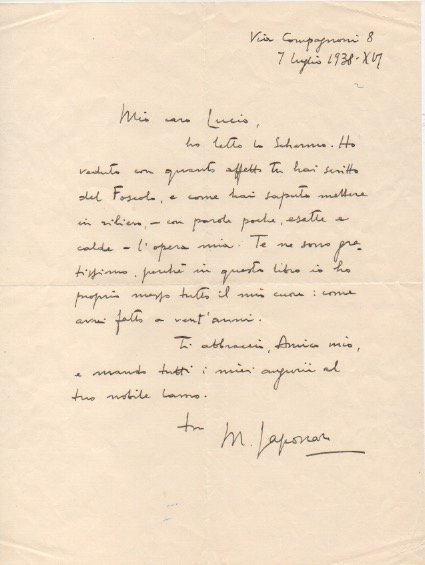 Via Compagnoni 8
7 luglio 1938-XVI
Mio caro Lucio,
ho letto lo Schermo. Ho
veduto con quanto affetto tu hai scritto
del Foscolo, e come hai saputo mettere
in rilievo, - con parole poche, esatte e
calde - l'opera mia. Te ne sono gra-
tissimo, perché in questo libro io ho
proprio messo tutto il mio cuore: come
avrei fatto a vent'anni.
Ti abbraccio, Amico mio,
e mando tutti i miei augurii al
tuo nobile lavoro.
tuo
M. Saponaro